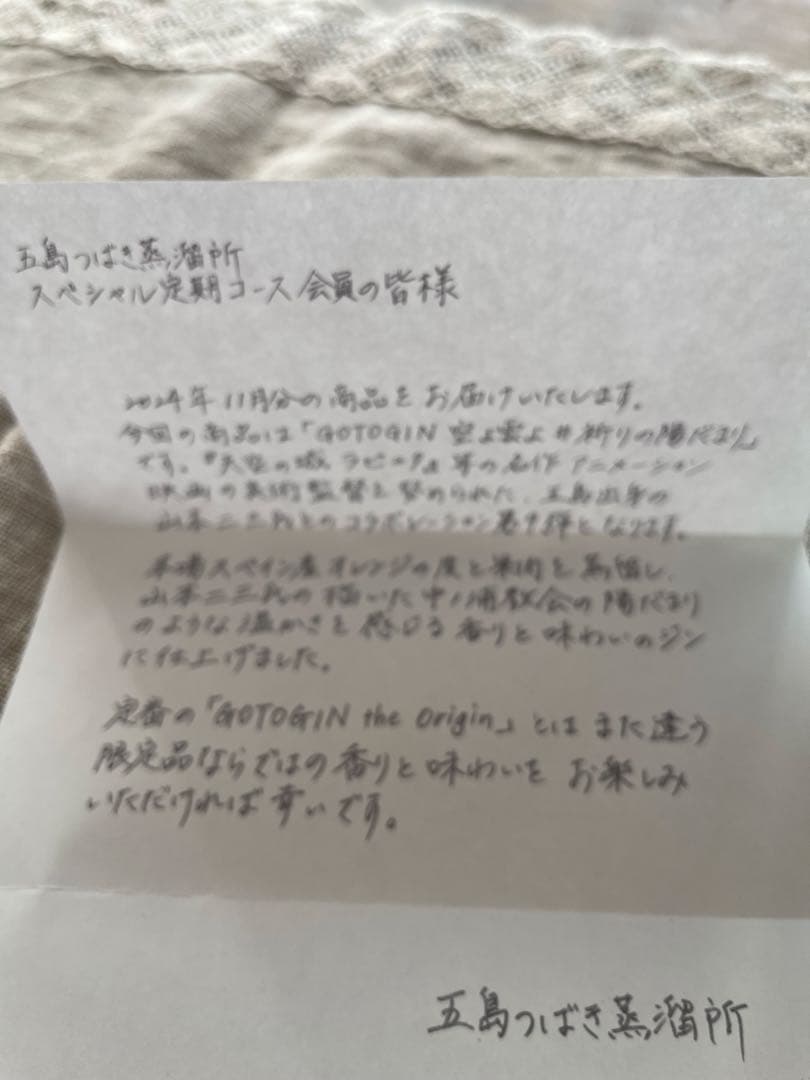 五島つばき蒸溜所
スペシャル定期コース会員の皆様
2024年11月分の商品をお届けいたします。
今回の商品は「GOTOGIN 空よ雲よ #祈りの陽だまり」
です。『天空の城ラピュタ』等の名作アニメーション
映画の美術監督を努められた、五島出身の
山本二三氏とのコラボレーション第
弾となります。
本場スペイン産オレンジの皮と果肉を蒸留し、
山本二三氏の描いた中ノ浦教会の陽だまり
のような温かさを感じる香りと味わいのジン
に仕上げました。
定番の「GOTOGIN the Origin」とはまた違う
限定品ならではの香りと味わいをお楽しみ
いただければ幸いです。
五島つばき蒸溜所